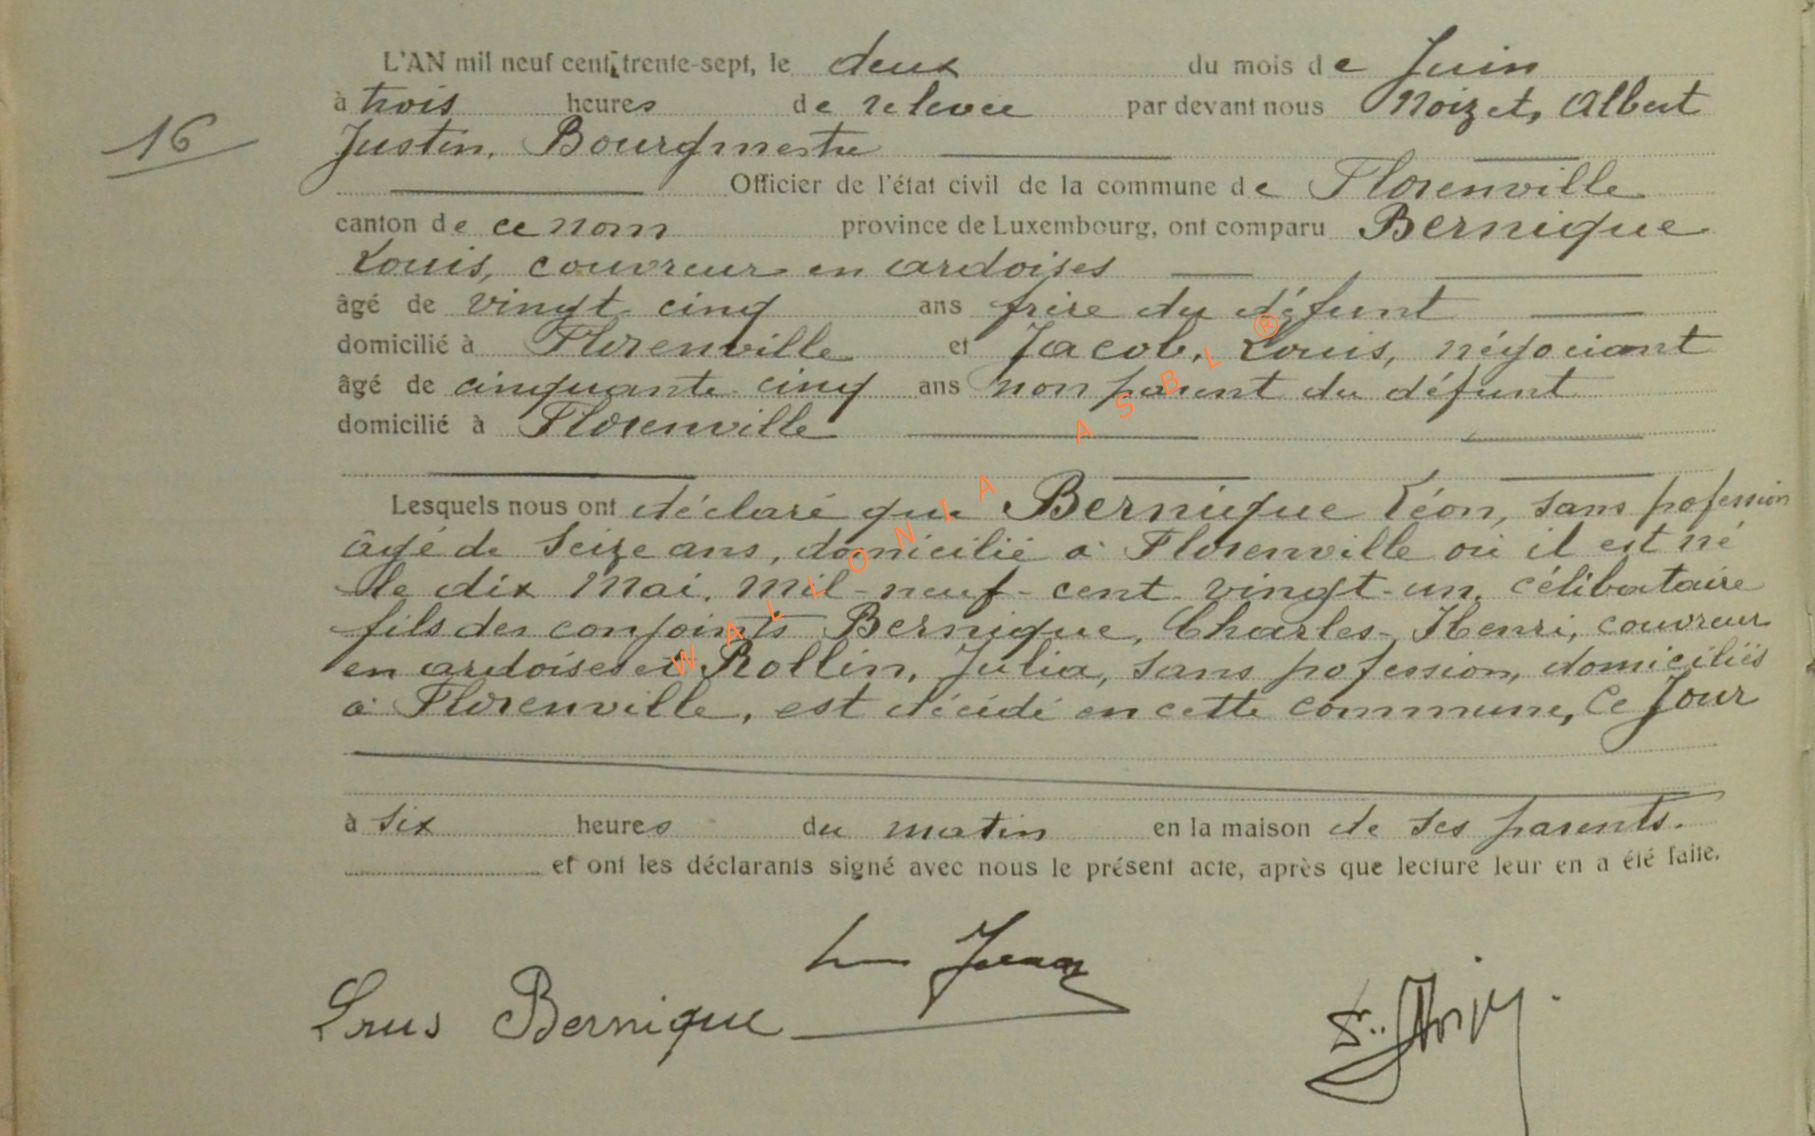 L'AN mil neuf cent trente-sept, le deux du mois de Juin
à trois heures de relevée par devant nous Noizet, Albert
16
Justin, Bourgmestre
Officier de l'état civil de la commune de Florenville
canton de ce nom province de Luxembourg, ont comparu Bernique
Louis, couvreur en ardoises
âgé de vingt cinq ans frère du défunt
domicilié à Florenville et Jacob, Louis, négociant
âgé de cinquante cinq ans non parent du défunt
domicilié à Florenville
Lesquels nous ont déclaré que Bernique Léon, sans pofession
âgé de Seize ans, domicilié à Florenville où il est né
le dix Mai, mil-neuf-cent-vingt-un, célibataire
fils des conjoints Bernique, Charles-Henri, couvreur
en ardoises et Rollin, Julia, sans pofession, domiciliés
à Florenville, est décédé en cette commune, Ce Jour
à six heures du matin en la maison de ses parents.
et ont les déclarants signé avec nous le présent acte, après que lecture leur en a été faite.
Louis Bernique
WALLONIA ASBL ®